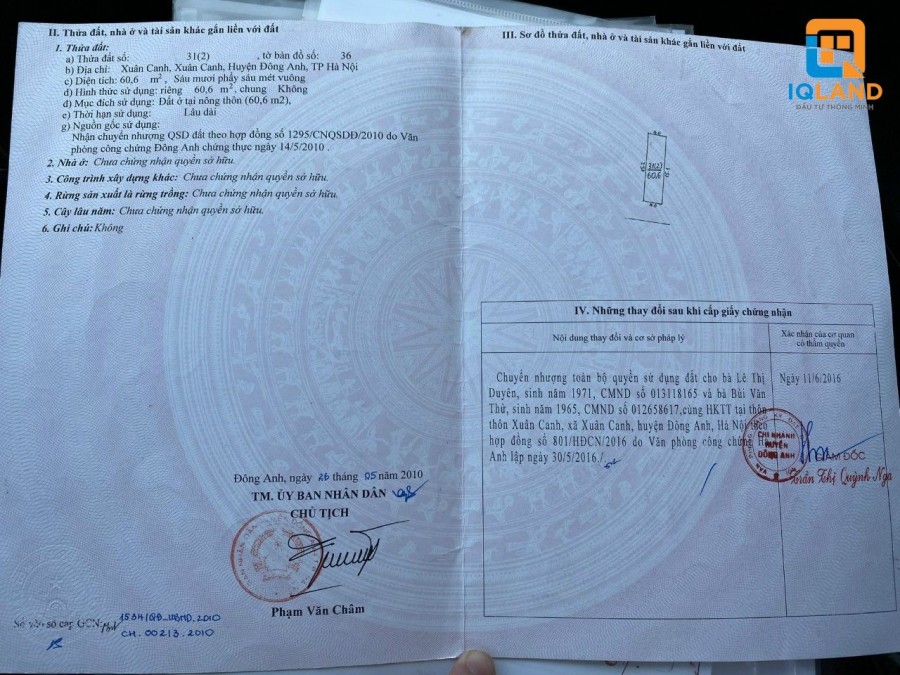 II. Thửa đất, nhà ở và tài sản khác gắn liền với đất
1. Thửa đất:
a) Thửa đất số: 31(2) , tờ bản đồ số: 36
b) Địa chỉ: Xuân Canh, Xuân Canh, Huyện Đông Anh, TP Hà Nội
c) Diện tích: 60,6 m², Sáu mươi phẩy sáu mét vuông
d) Hình thức sử dụng: riêng 60,6 m², chung Không
đ) Mục đích sử dụng: Đất ở tại nông thôn (60,6 m2),
e) Thời hạn sử dụng: Lâu dài
g) Nguồn gốc sử dụng:
Nhận chuyển nhượng QSD đất theo hợp đồng số 1295/CNQSDĐ/2010 do Văn
phòng công chứng Đông Anh chứng thực ngày 14/5/2010 .
2. Nhà ở: Chưa chứng nhận quyền sở hữu.
3. Công trình xây dựng khác: Chưa chứng nhận quyền sở hữu.
4. Rừng sản xuất là rừng trồng: Chưa chứng nhận quyền sở hữu.
5. Cây lâu năm: Chưa chứng nhận quyền sở hữu.
6. Ghi chú: Không
Đông Anh, ngày 26 tháng 05 năm 2010
TM. ỦY BAN NHÂN DÂN
CHỦ TỊCH
Phạm Văn Châm
Số vào sổ cấp GCN:
1534/QĐ_UBND.2010
CH.00213.2010
III. Sơ đồ thửa đất, nhà ở và tài sản khác gắn liền với đất
IQLAND
ĐẦU TƯ THÔNG MINH
31(2)
60,6
IV. Những thay đổi sau khi cấp giấy chứng nhận
Nội dung thay đổi và cơ sở pháp lý
Xác nhận của cơ quan
có thẩm quyền
Chuyển nhượng toàn bộ quyền sử dụng đất cho bà Lê Thị
Duyên, sinh năm 1971, CMND số 013118165 và bà Bùi Văn
Thử, sinh năm 1965, CMND số 012658617,cùng HKTT tại thôn
thôn Xuân Canh, xã Xuân Canh, huyện Đông Anh, Hà Nội theo
hợp đồng số 801/HĐCN/2016 do Văn phòng công chứng
Anh lập ngày 30/5/2016./.
Ngày 11/6/2016
CHI NHÁNH
HUYỆN
ĐÔNG ANH
GIÁM ĐỐC
Trần Thị Quỳnh Nga